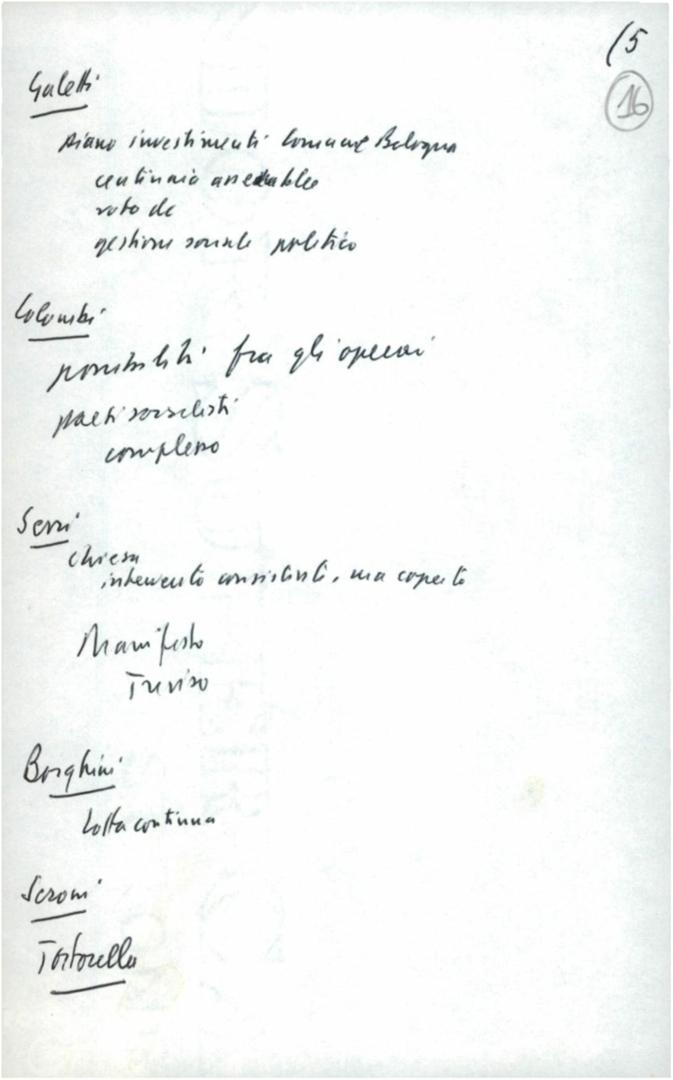 (5
16
Galetti
piano investimenti Comune Bologna
centinaio assemblee
voto dc
gestione sociale politico
Colombi
possibiliti fra gli operai
paesi socialisti
complesso
Serri
chiesa
intervento consistente, ma coperto
Manifesto
Treviso
Borghini
Lotta continua
Seroni
Tortorella